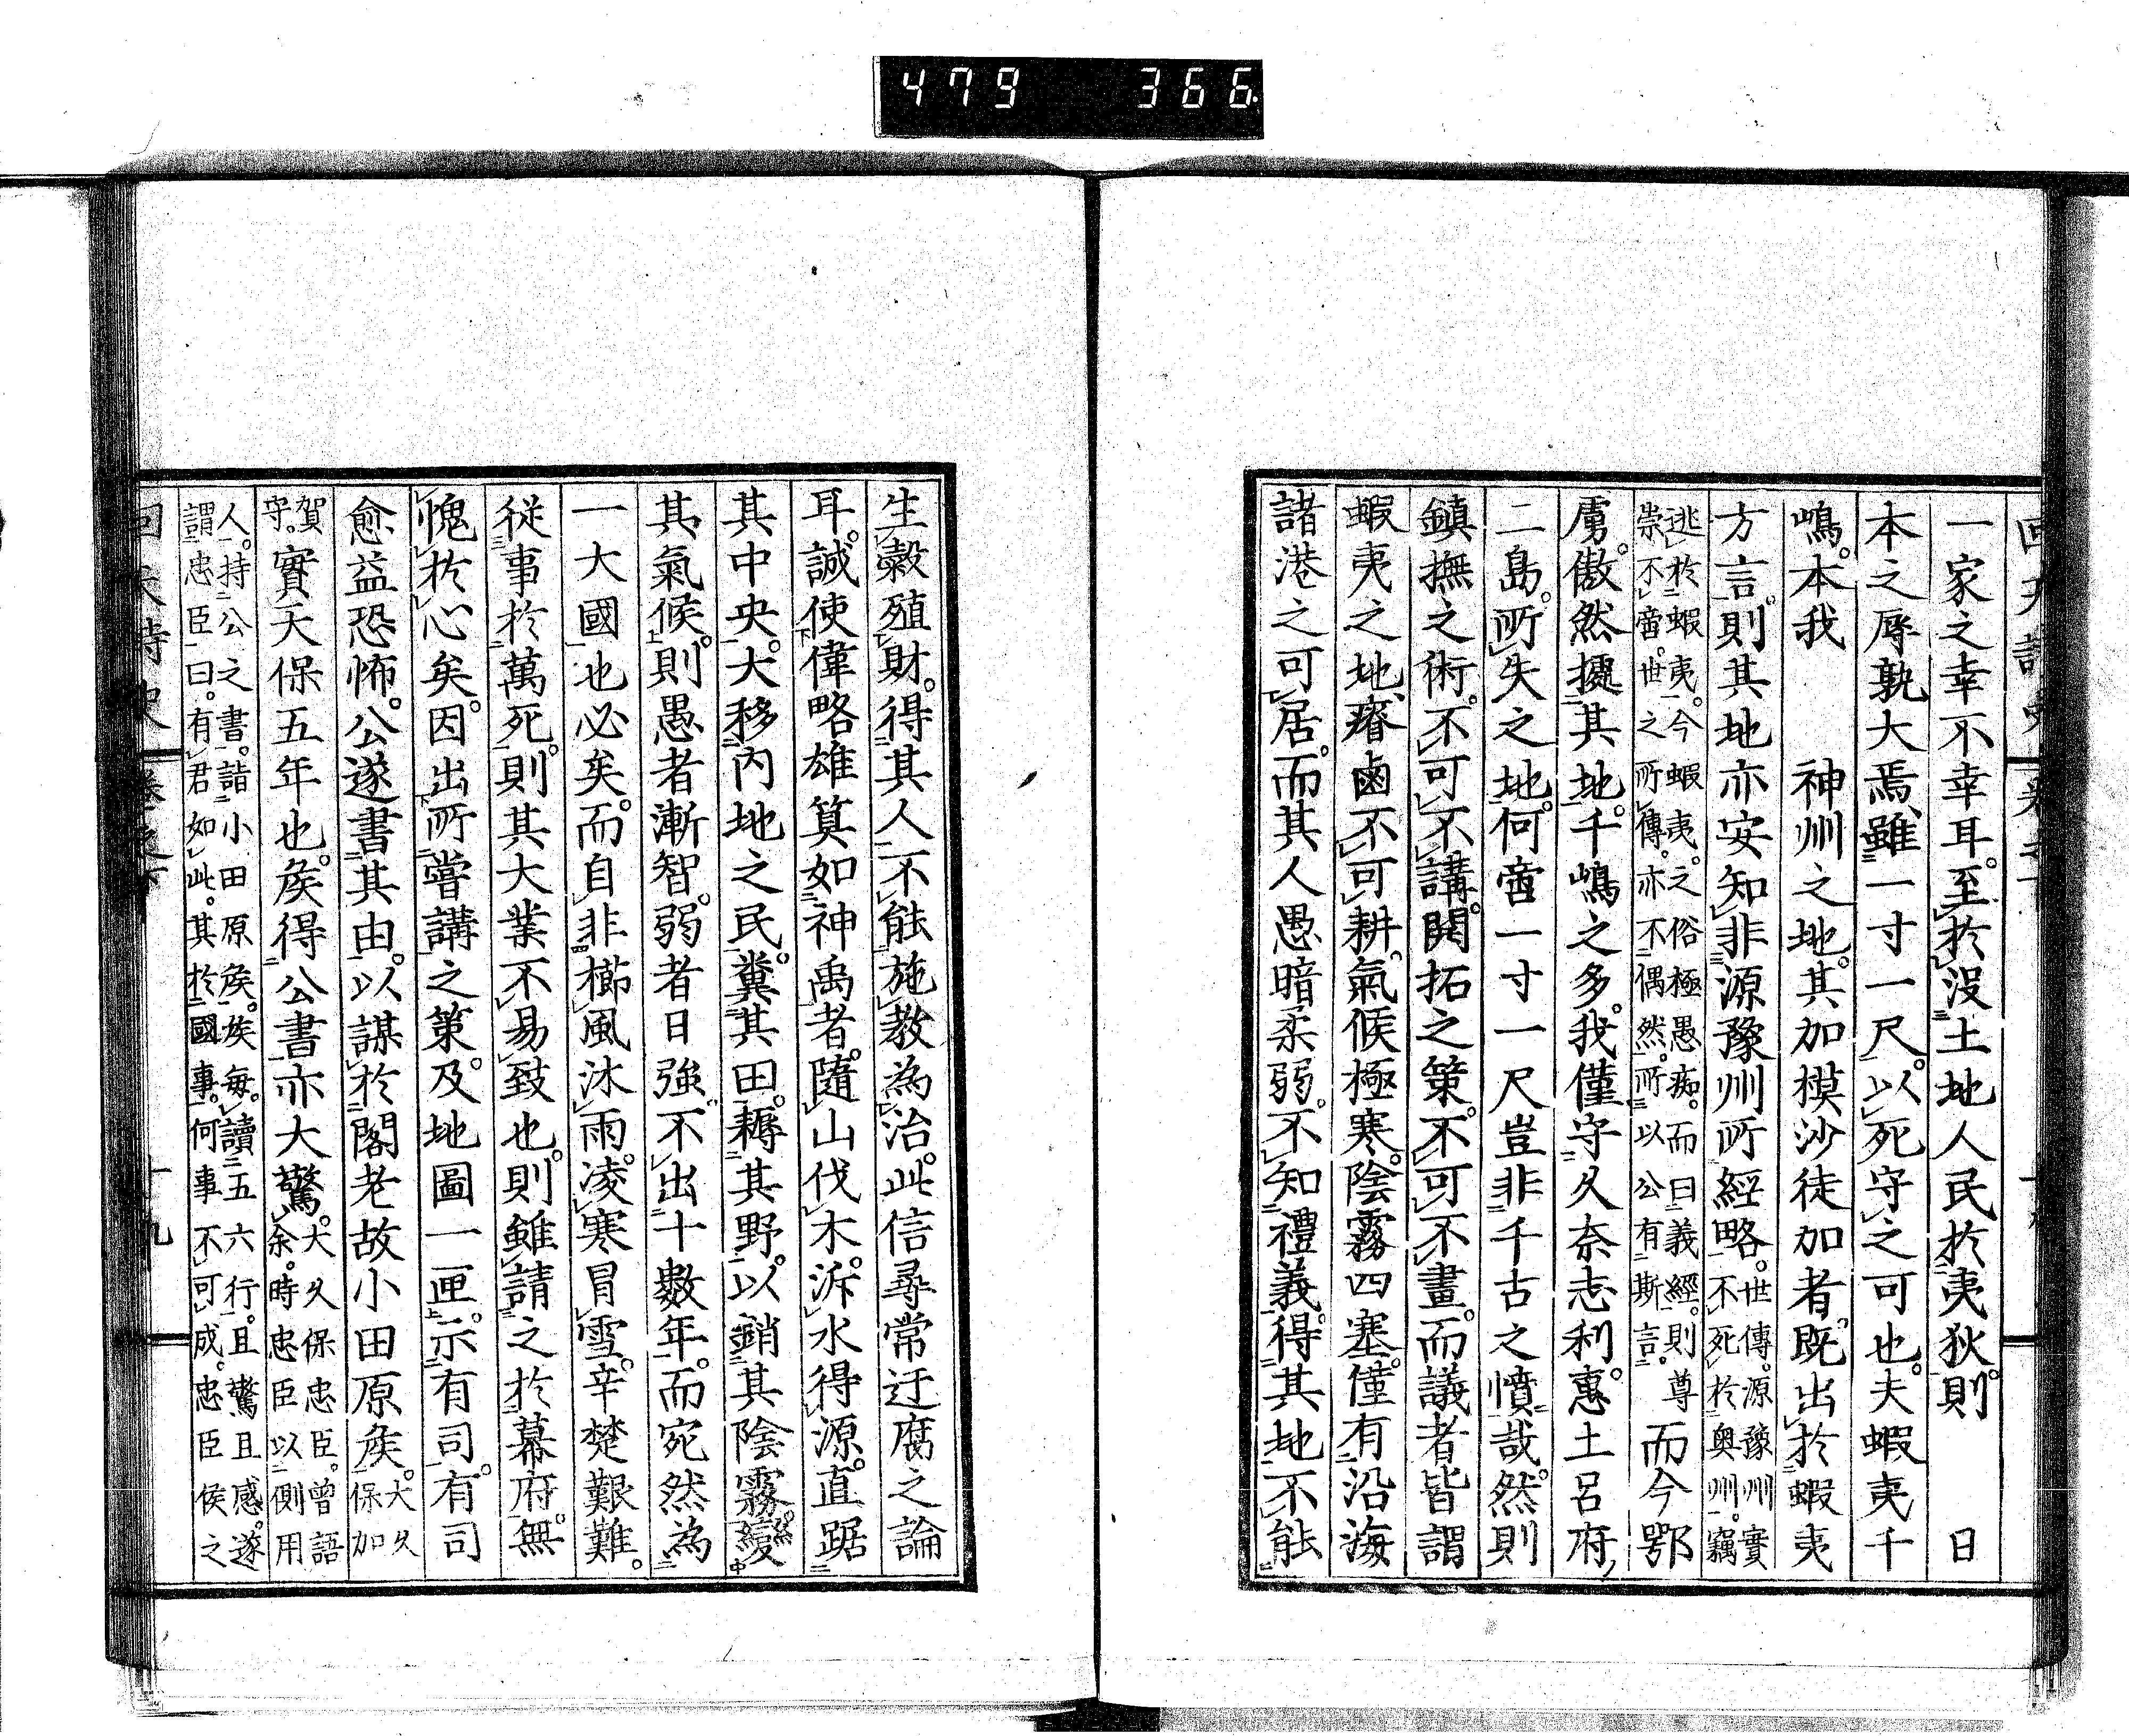 479 366
一家之幸不幸耳。至於没土地人民於夷狄。則 日
本之辱孰大焉、雖一寸一尺。以死守之可也。夫蝦夷千
嶋。本我 神州之地。其加模沙徒加者。既出於蝦夷
方言。則其地亦安知非源豫州所經略。世傳。源豫州實不死於奥州。竊
逃於蝦夷。今蝦夷之俗極愚痴。而曰義經。則尊崇不啻。世之所傳。亦不偶然。所以公有斯言。而今鄂
虜。傲然擾其地。千嶋之多。我僅守久奈志利。惠土呂府、
二島。所失之地。何啻一寸一尺豈非千古之憤哉。然則
鎮撫之術。不可不講。開拓之策。不可不畫。而議者皆謂
蝦夷之地、瘠鹵不可耕。氣候極寒。陰霧四塞。僅有沿海
諸港之可居。而其人愚暗柔弱。不知禮義。得其地不能
生穀殖財。得其人不能施教為治。此信尋常迂腐之論
耳。誠使偉略雄算如神禹者。隨山伐木。泝水得源。直踞
其中央。大移内地之民。糞其田。耨其野。以銷其陰霧。變
其氣候。則愚者漸智。弱者日強。不出十數年。而宛然為
一大國也必矣。而自非櫛風沐雨。凌寒冒雪。辛楚艱難。
從事於萬死。則其大業不易致也。則雖請之於幕府。無
愧於心矣。因出所嘗講之策。及地圖一匣。示有司。有司
愈益恐怖。公遂書其由。以謀於閣老故小田原矦。大久保加
賀守。實天保五年也。矦得公書亦大驚。大久保忠臣。曾語余。時忠臣以側用
人。持公之書。詣小田原矦。矦毎讀五六行。且驚且感。遂謂忠臣曰。有君如此。其於國事。何事不可成。忠臣侯之